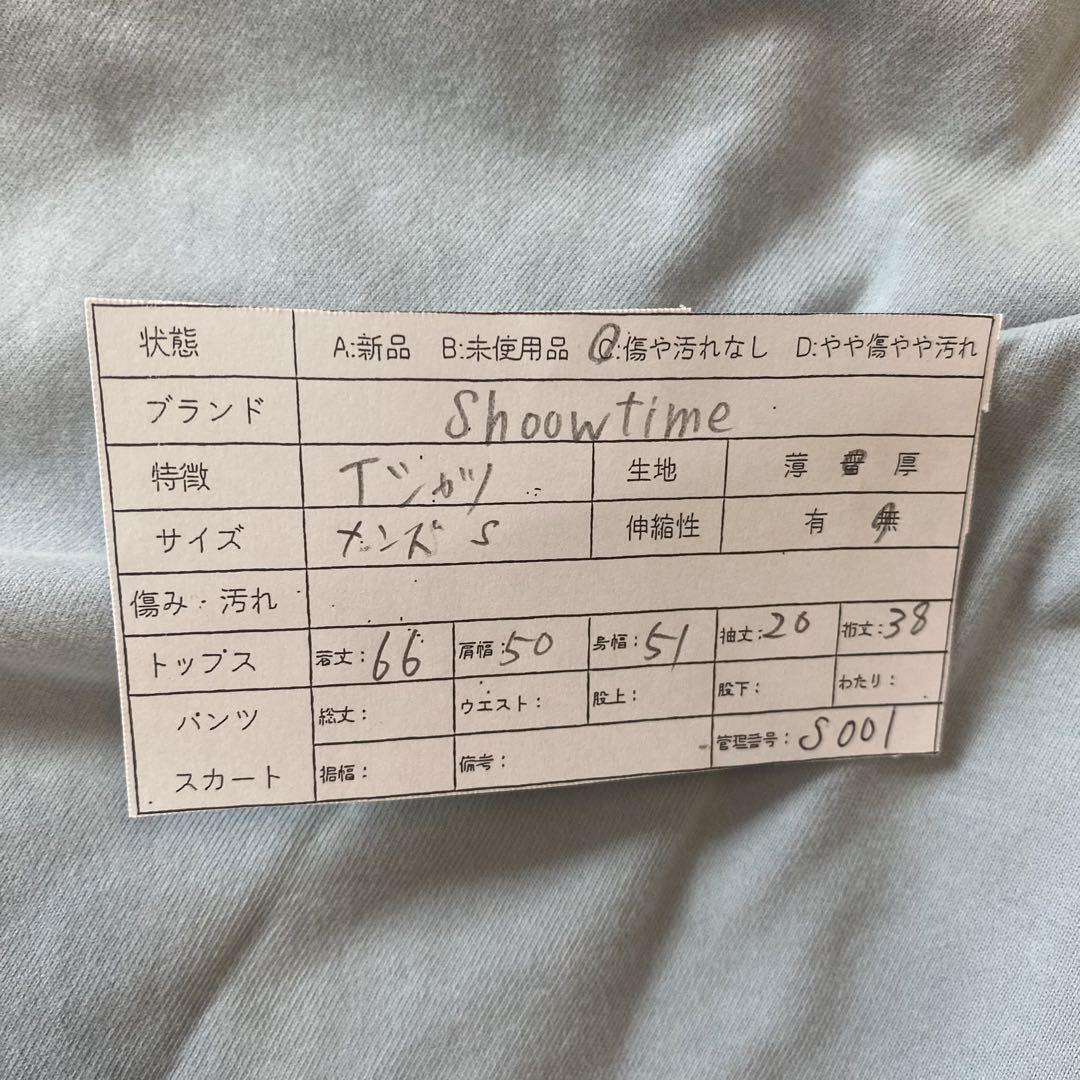 状態 A:新品 B:未使用品 C:傷や汚れなし D:やや傷やや汚れ
ブランド Shoowtime
特徴 Tシャツ 生地 薄 普 厚
サイズ メンズ S 伸縮性 有 無
傷み・汚れ
トップス 着丈:66 肩幅:50 身幅:51 袖丈:20 裄丈:38
パンツ 総丈: ウエスト: 股上: 股下: わたり:
スカート 裾幅: 備考: 管理番号:S001